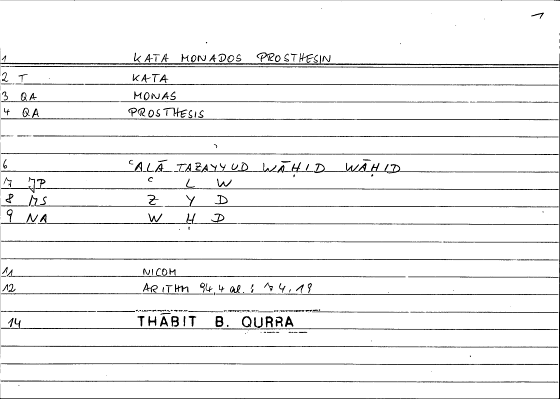 1 KATA MONADOS PROSTHESIN
2 T KATA
3 QA MONAS
4 QA PROSTHESIS
6 ʿALĀ TAZAYYUD WĀḤID WĀḤID
7 JP ʿ L W
8 MS Z Y D
9 NA W Ḥ D
11 NICOM
12 ARITHM 94,4 al. : 74,19
14 THĀBIT B. QURRA